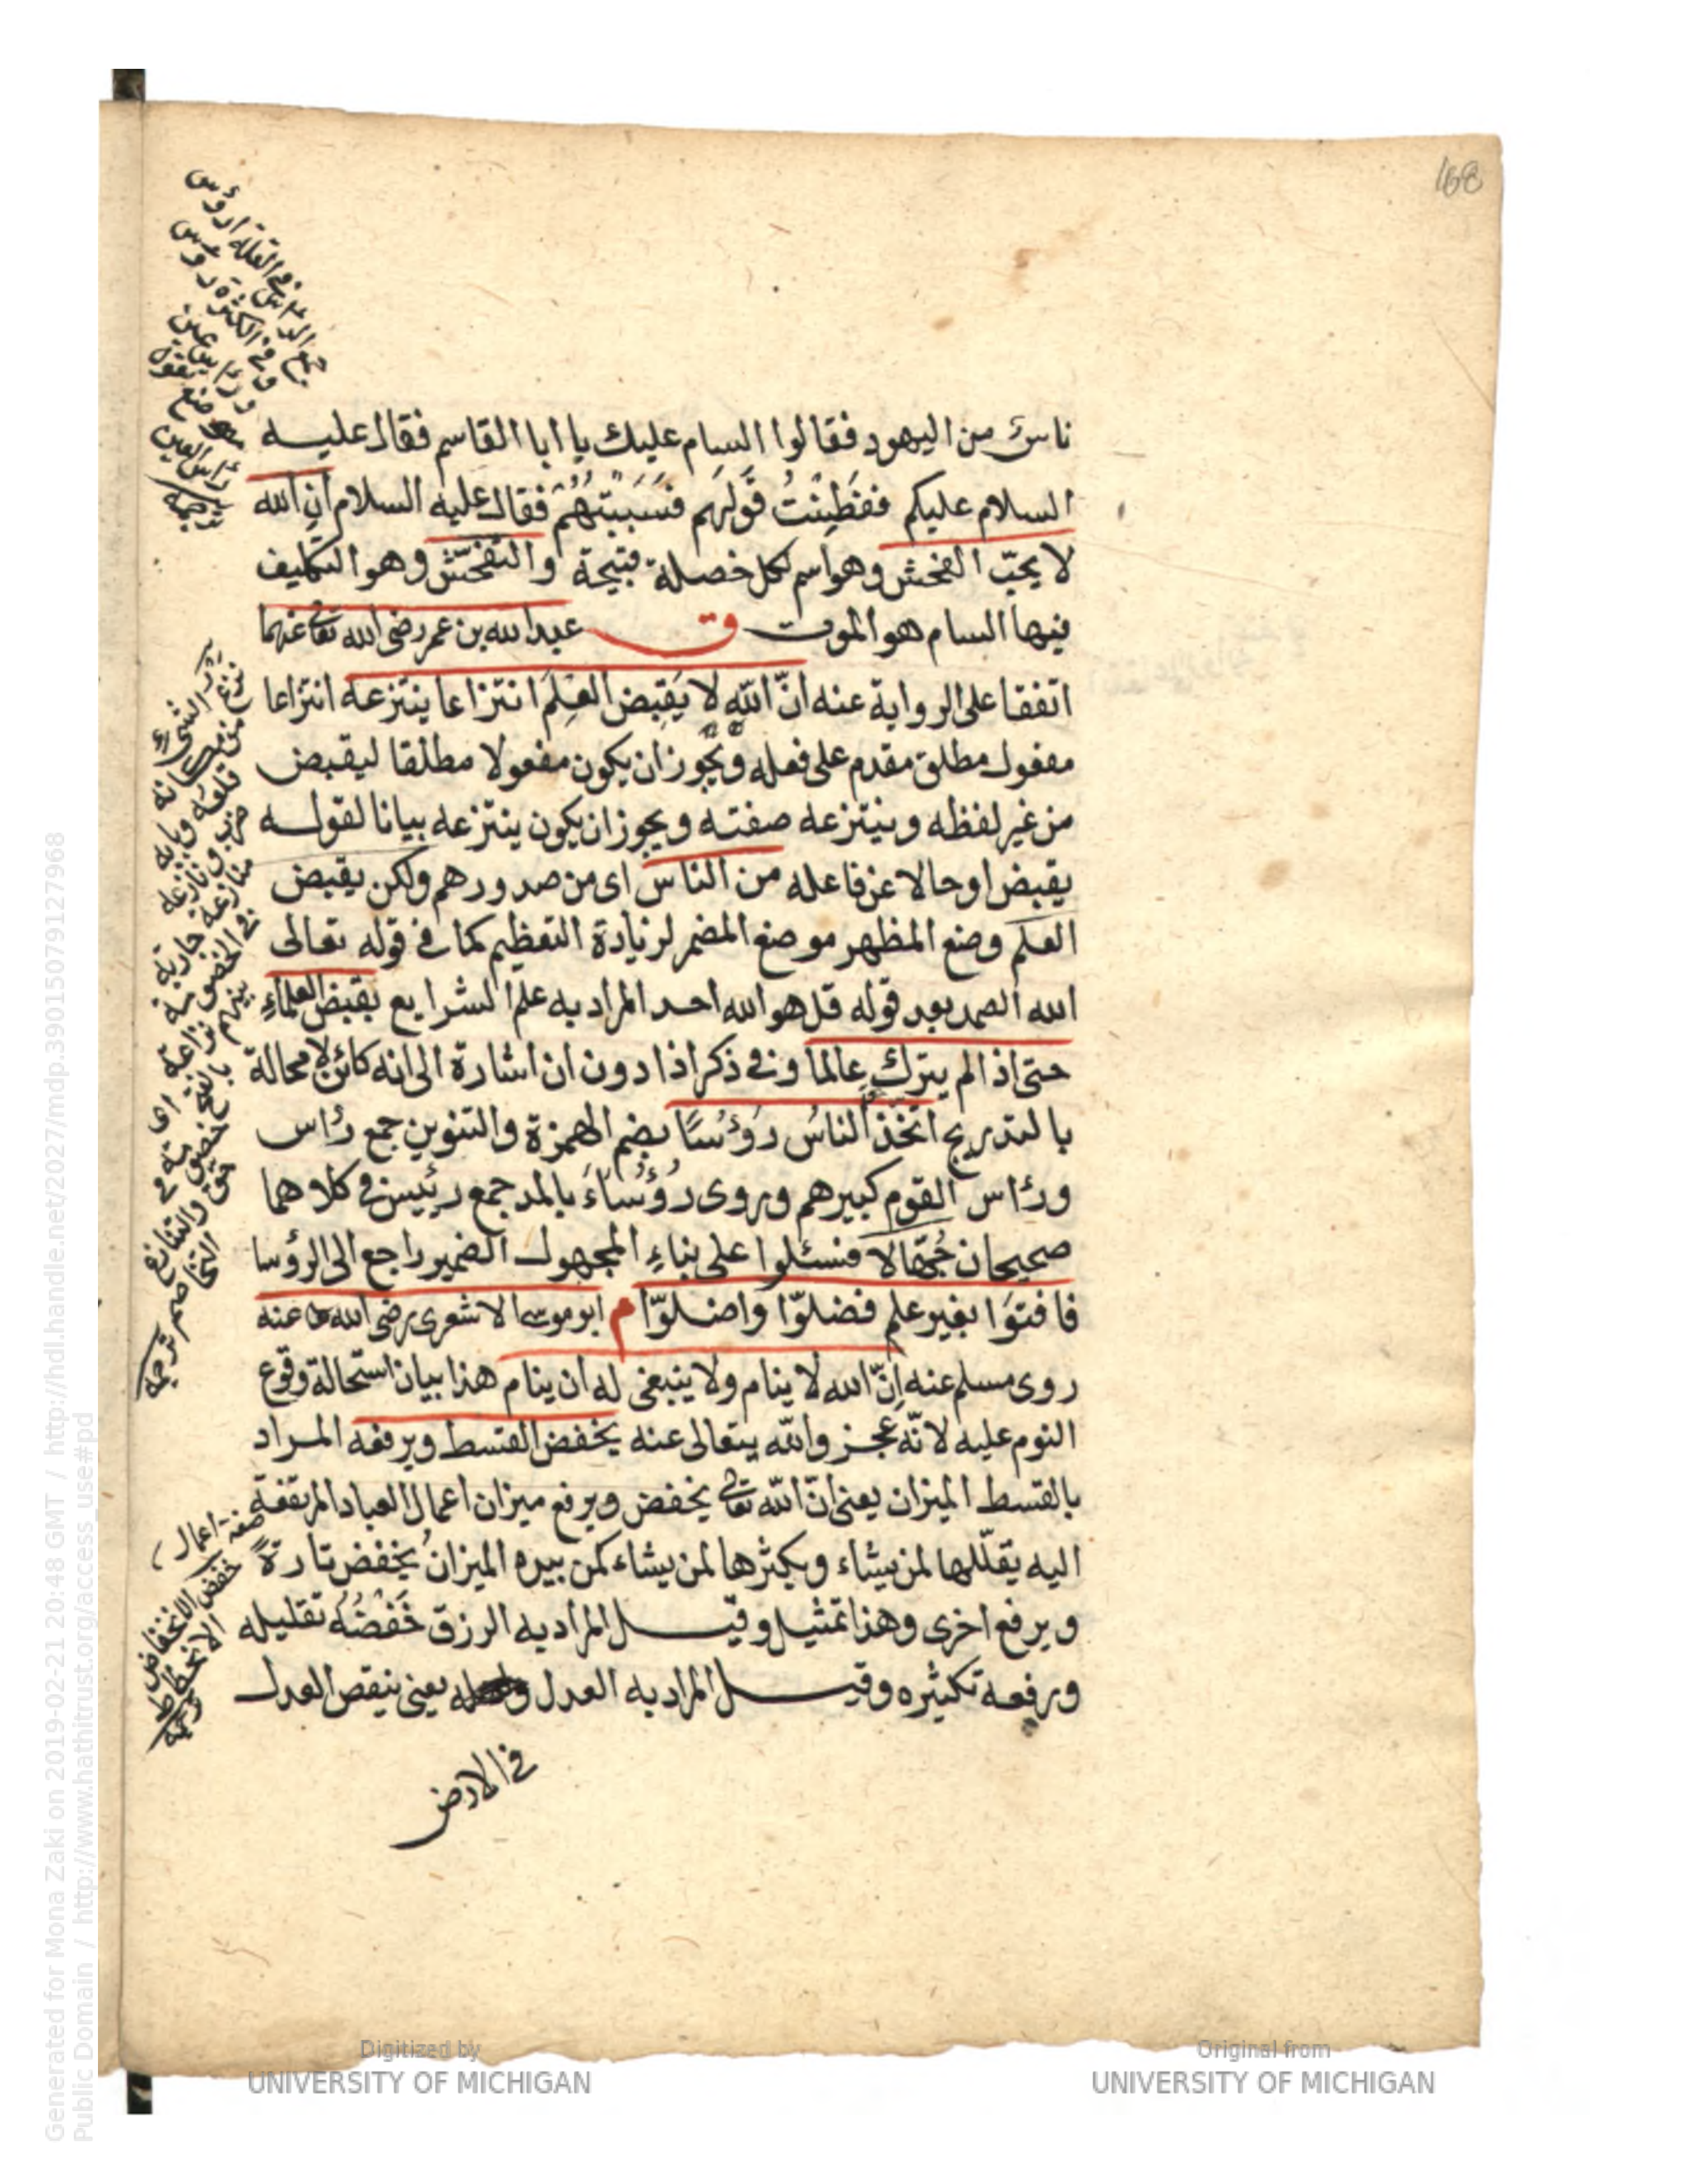 168
ناس من اليهود فقالوا السام عليك يا ابا القاسم فقال عليه
السلام عليكم ففَطِنْتُ قَولَهم فسَبَبْتهُمْ فقال عليه السلام ان الله
لا يحبّ الفحش وهو اسم لكل خصلة قبيحة والتفحّش وهو التكليف
فيها السام هو الموت ق عبد الله بن عمر رضى الله تعالى عنهما
اتفقا على الرواية عنه انّ الله لا يَقبِض العِلمَ انتزاعا ينتزعه انتزاعا
مفعول مطلق مقدم على فعله ويجوز ان يكون مفعولا مطلقا ليقبض
من غير لفظه وينتزعه صفته ويجوز ان يكون ينتزعه بيانا لقوله
يقبض او حالا عن فاعله من الناس اى من صدورهم ولكن يقبض
العلم وضع المظهر موضع المضمر لزيادة التعظيم كما في قوله تعالى
الله الصمد بعد قوله قل هو الله احد المراد به علم الشرايع بقبض العلماءِ
حتى اذا لم يترك عالما وفي ذكر اذا دون ان اشارة الى انه كائن لا محالة
بالتدريج اتخّذ الناسُ رؤسًا بضم الهمزة والتنوين جمع رأس
ورأس القوم كبيرهم ويروى رُؤُسَاءَ بالمد جمع رئيس في كلاهما
صحيحان جُهّالا فسئلوا على بناءِ المجهول الضمير راجع الى الرؤسا
فافتوا بغير علم فضلوّا واضلوّا م ابو موسى الاشعرى رضى الله عنه
روى مسلم عنه اِنّ الله لا ينام ولا ينبغى له ان ينام هذا بيان استحالة وقوع
النوم عليه لانّه عجز والله يتعالى عنه يخفض القسط ويرفعه المراد
بالقسط الميزان يعنى انّ الله تعالى يخفض ويرفع ميزان اعمال العباد المرتفعة
اليه يقلّلها لمن يشاء ويكثرها لمن يشاء كمن بيده الميزان يخفض تارةً
ويرفع اخرى وهذا تمثيل وقيل المراد به الرزق خَفْضُه تقليله
ورفعه تكثيره وقيل المراد به العدل يعنى ينقص العدل
في الارض
جمع الرأس في القلة ارؤس
وفي الكثرة رؤس
نزعت الشئ
من مكانه
صفة اعمال
Generated for Mona Zaki on 2019-02-21 20:48 GMT / http://hdl.handle.net/2027/mdp.39015079127968
Public Domain / http://www.hathitrust.org/access_use#pd
Digitized by
UNIVERSITY OF MICHIGAN
Original from
UNIVERSITY OF MICHIGAN